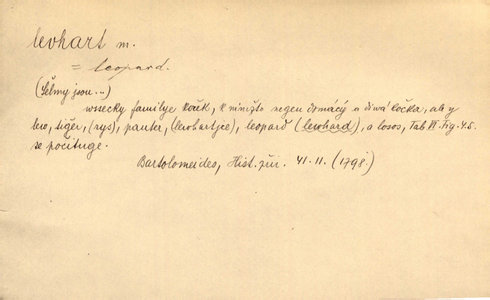 levhart m.
= leopard.
(Šelmy jsou...)
wssecky familye koček, k nimžto negen domácý a diwá kočka, ale y
lew, tiger, (rys), panter, (lewhartice), leopard (lewhard), a losos, Tab VI. Fig. 4.5.
se počituge.
Bartolomeides, Hist. při. 41. II. (1798.)